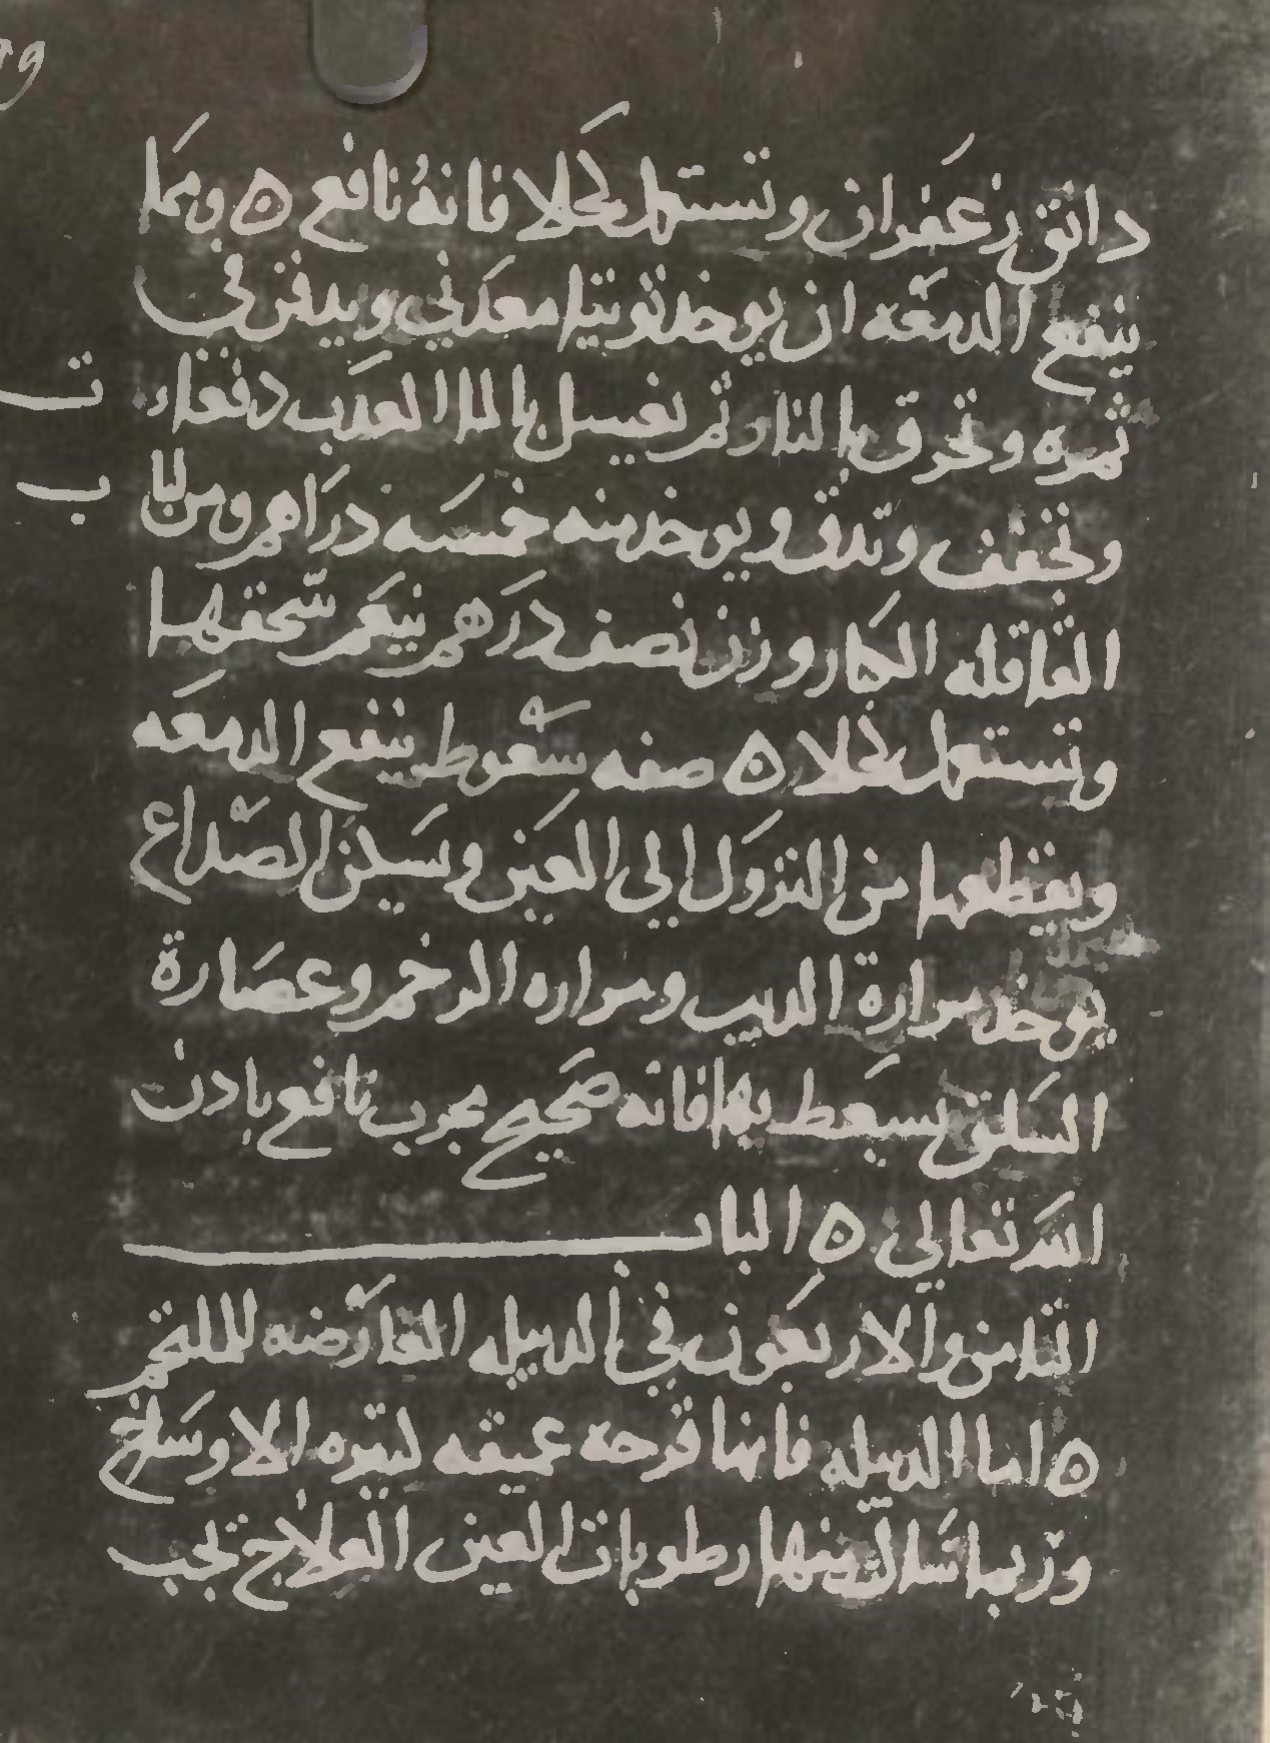 دانق زعفران وتستعمل كحلا فانه نافع ۞ ومما
ينفع الدمعه ان يوخد توتيا معدني ويدفن في
ثمره وتحرق بالنار ثم تغسل بالما العدب دفعات
وتجفف وتدق ويوخد منه خمسه دراهم ومن لباب
القاقله الكبار وزن نصف درهم ينعم سحقها
وتستعمل كحلا ۞ صفه سعوط ينفع الدمعه
ويقطعها من النزول الي العين ويسكن الصداع
يوخد مرارة الديب ومراره الرخم وعصارة
السلق يسعط بها فانه صحيح مجرب نافع بادن
الله تعالي ۞ الباب
الثامن والاربعون في الدبيله العارضه للملتحم
۞ اما الدبيله فانها قرحه عميقه كتيره الاوساخ
وربما سالت منها رطوبات العين العلاج تجب